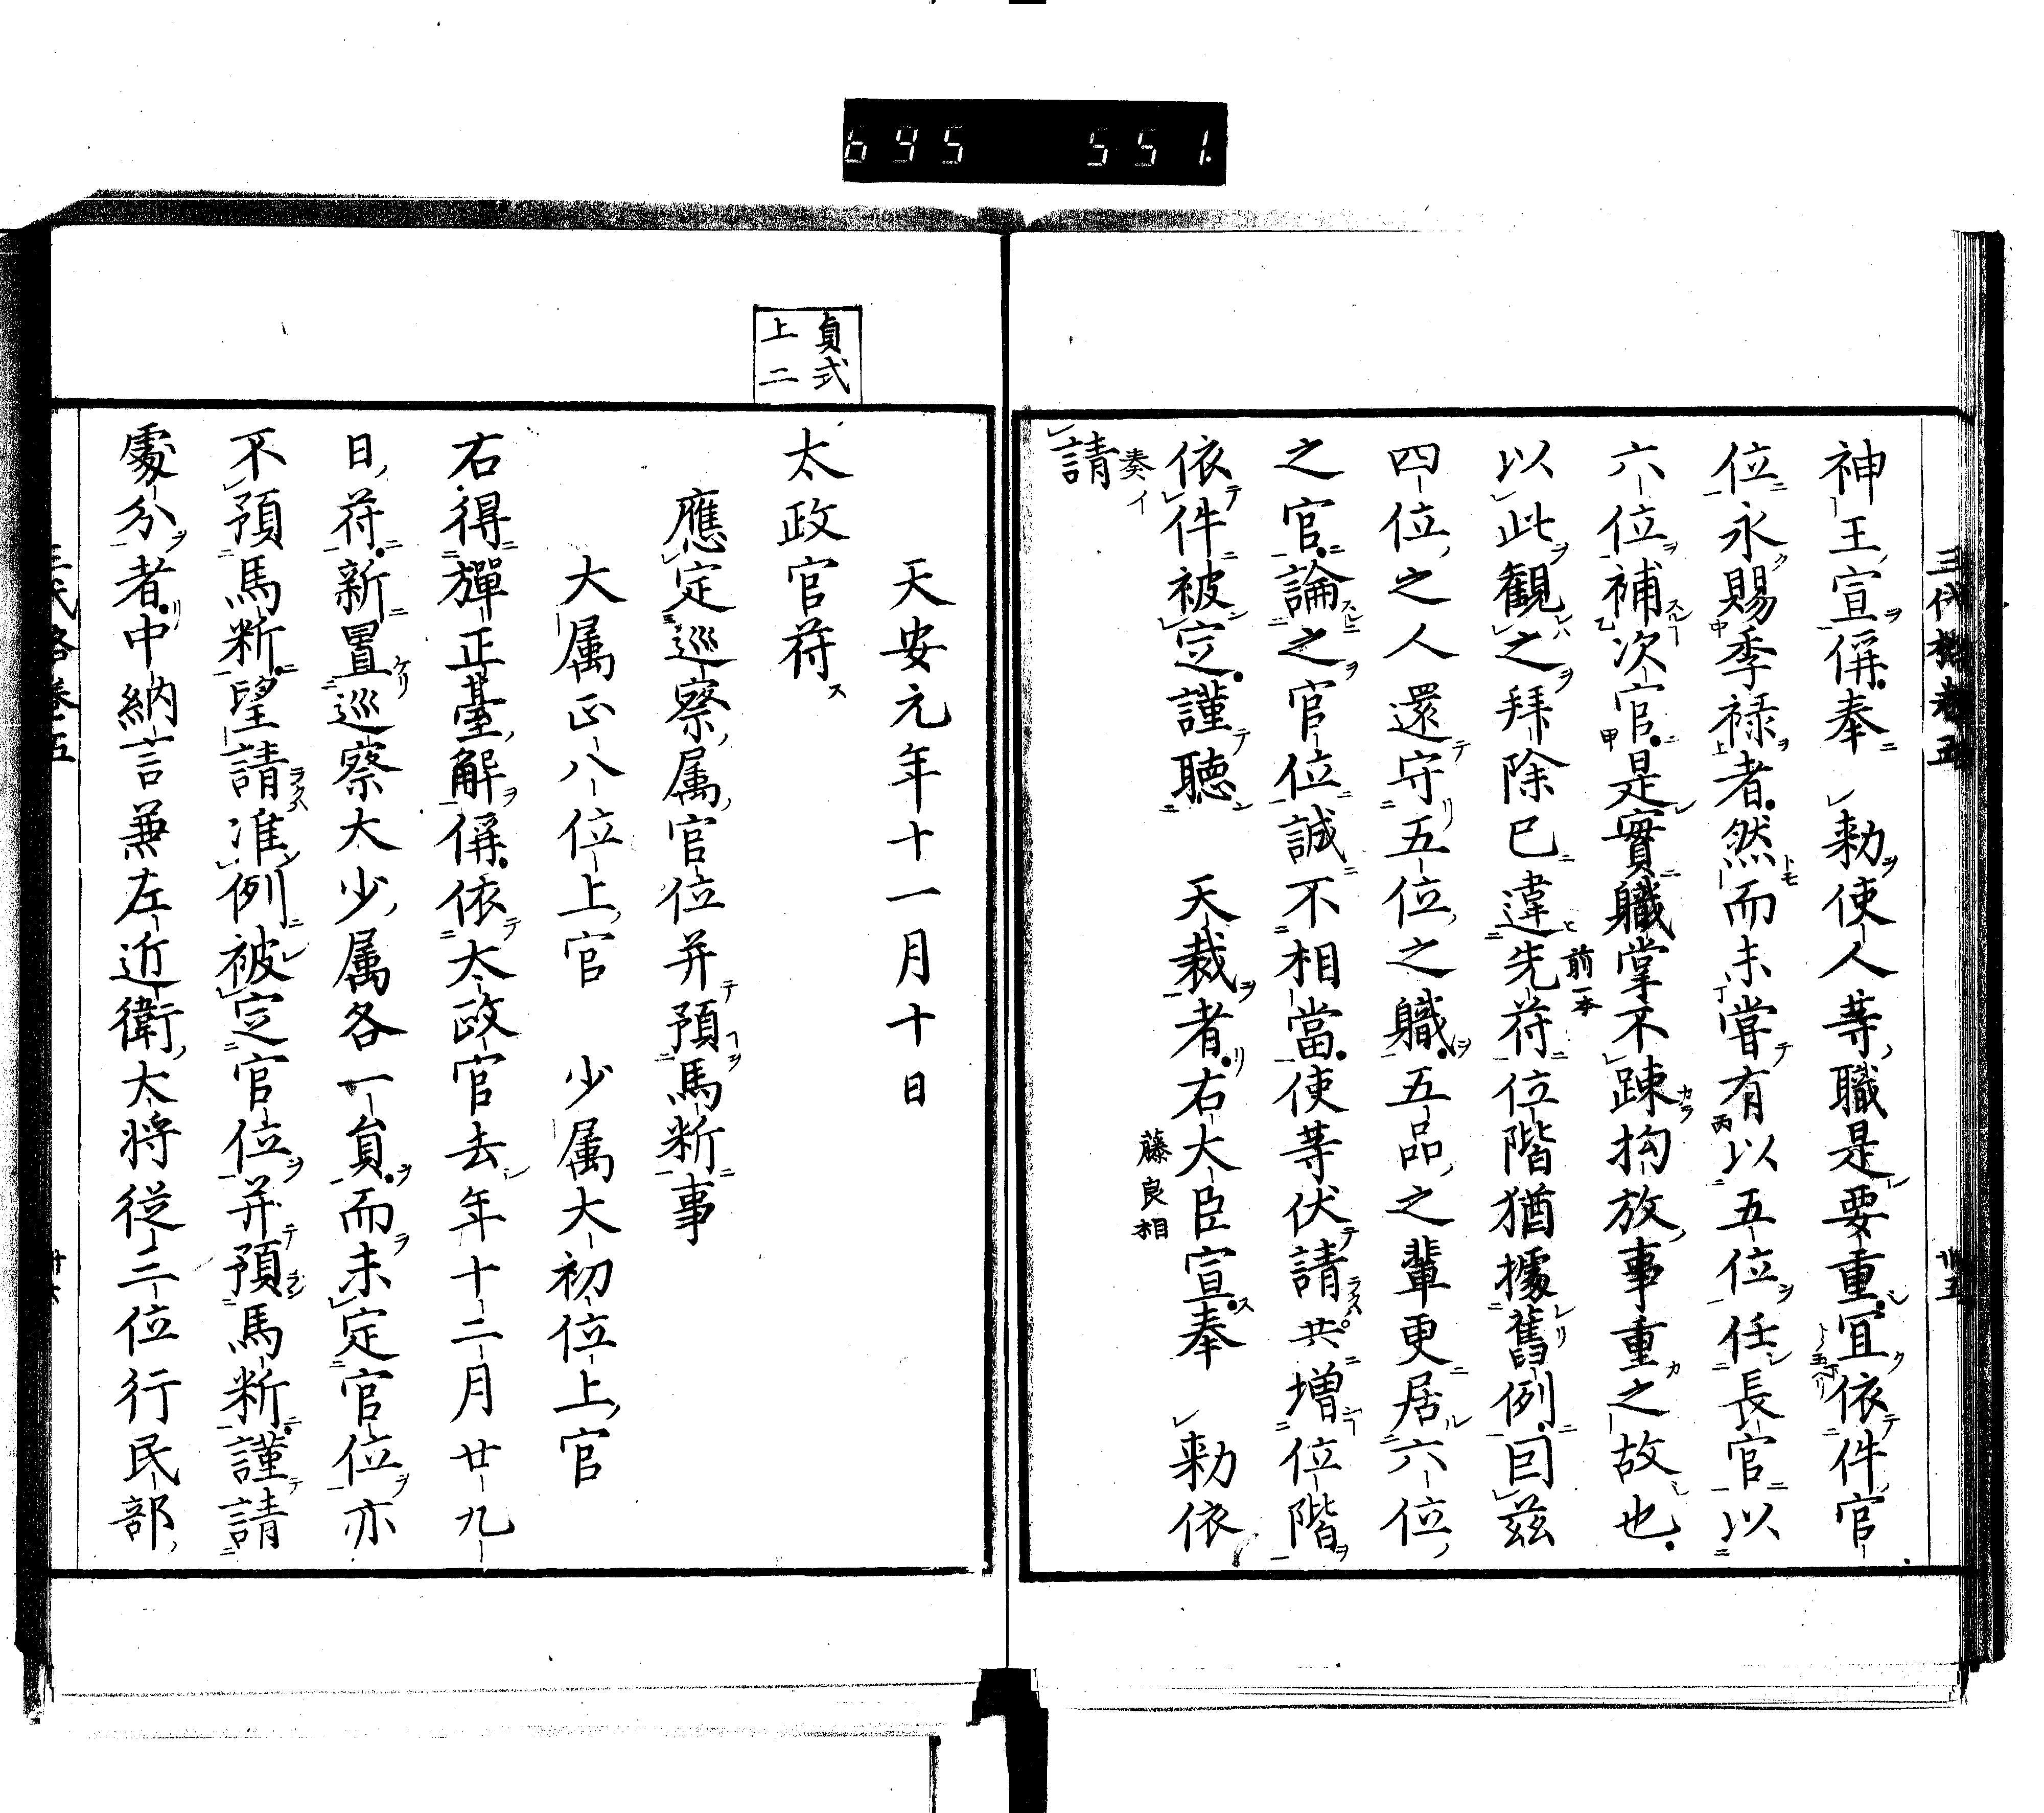 695 551.
神王宣偁奉 勅使人等職是要重宜依件官
位永賜季禄者然而未嘗有以五位任長官以
六位補次官是實職掌不踈拘放事重之故也
以此観之拜除已違先符位階猶據舊例囙茲
前一本
四位之人還守五位之職五品之輩更居六位
之官論之官位誠不相當使等伏請共増位階
依件被定謹聴 天裁者右大臣宣奉 勅依
藤良相
請
奏イ
天安元年十一月十日
貞式
上二
太政官符
應定巡察属官位并預馬断事
大属正八位上官 少属大初位上官
右得彈正臺解偁依太政官去年十二月廿九
日符新置巡察大少属各一員而未定官位亦
不預馬断望請准例被定官位并預馬断謹請
處分者中納言兼左近衛大将従二位行民部